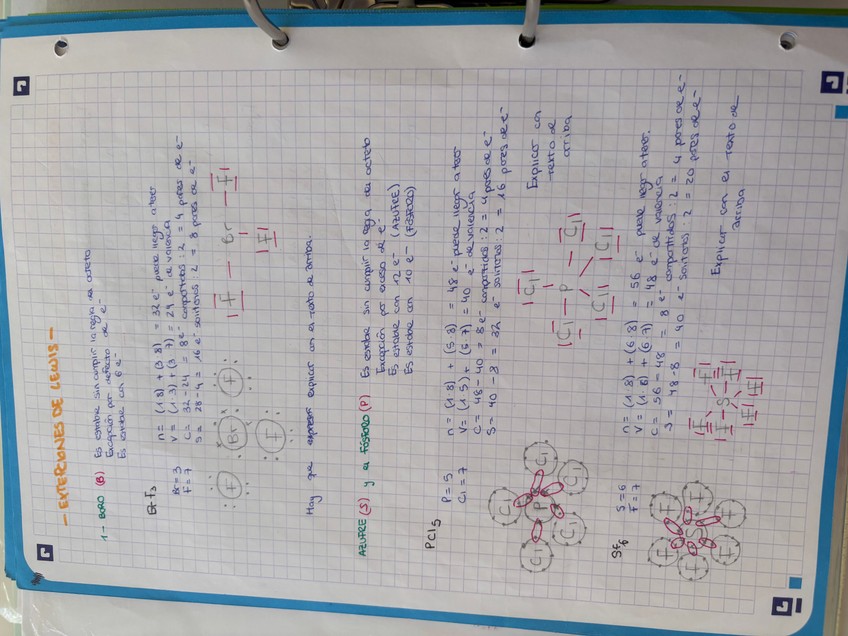 - EXTERCIONES DE LEWIS -
1- BORO (B) Es estable sin cumplir la regla del octeto
Excepción por defecto de e-
Es estable con 6 e-
BrF3
Br = 3
F = 7
n = (1·8) + (3·8) = 32 e- puede llegar a tener
v = (1·3) + (3·7) = 24 e- de valencia
c = 32 - 24 = 8 e- compartidos : 2 = 4 pares de e-
s = 28 - 4 = 16 e- solitarios : 2 = 8 pares de e-
F Br F
F
F — Br — F
F
Hay que expresar explicar con el texto de arriba.
AZUFRE (S) y el FÓSFORO (P) Es estable sin cumplir la regla del octeto
Excepción por exceso de e-
Es estable con 12 e- (AZUFRE)
Es estable con 10 e- (FÓSFORO)
PCl5
P = 5
Cl = 7
n = (1·8) + (5·8) = 48 e- puede llegar a tener
v = (1·5) + (5·7) = 40 e- de valencia
c = 48 - 40 = 8 e- compartidos : 2 = 4 pares de e-
s = 40 - 8 = 32 e- solitarios : 2 = 16 pares de e-
Cl Cl
Cl P Cl
Cl
Cl
Cl — P — Cl
Cl Cl
Explicar con
texto de
arriba
SF6
S = 6
F = 7
n = (1·8) + (6·8) = 56 e- puede llegar a tener.
v = (1·6) + (6·7) = 48 e- de valencia
c = 56 - 48 = 8 e- compartidos : 2 = 4 pares de e-
s = 48 - 8 = 40 e- solitarios : 2 = 20 pares de e-
F F F
S
F F F
F F
F — S — F
F F
Explicar con el texto de
arriba